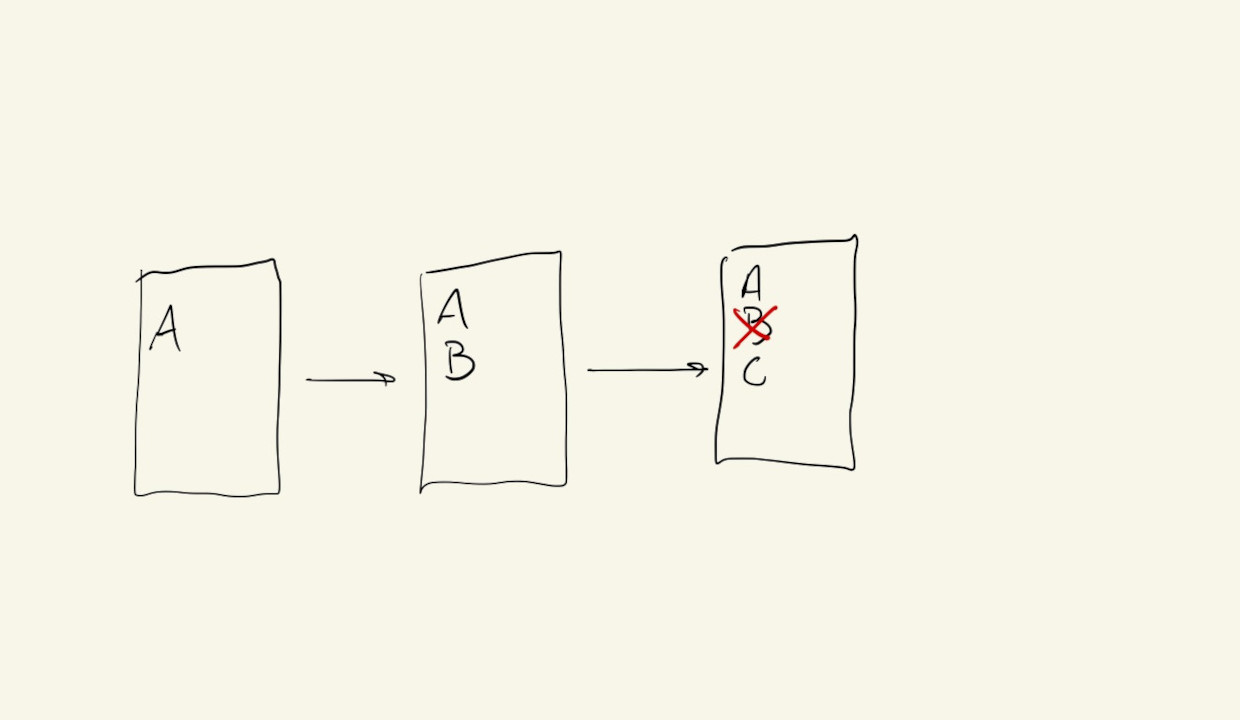 A
A
B
A
B
C